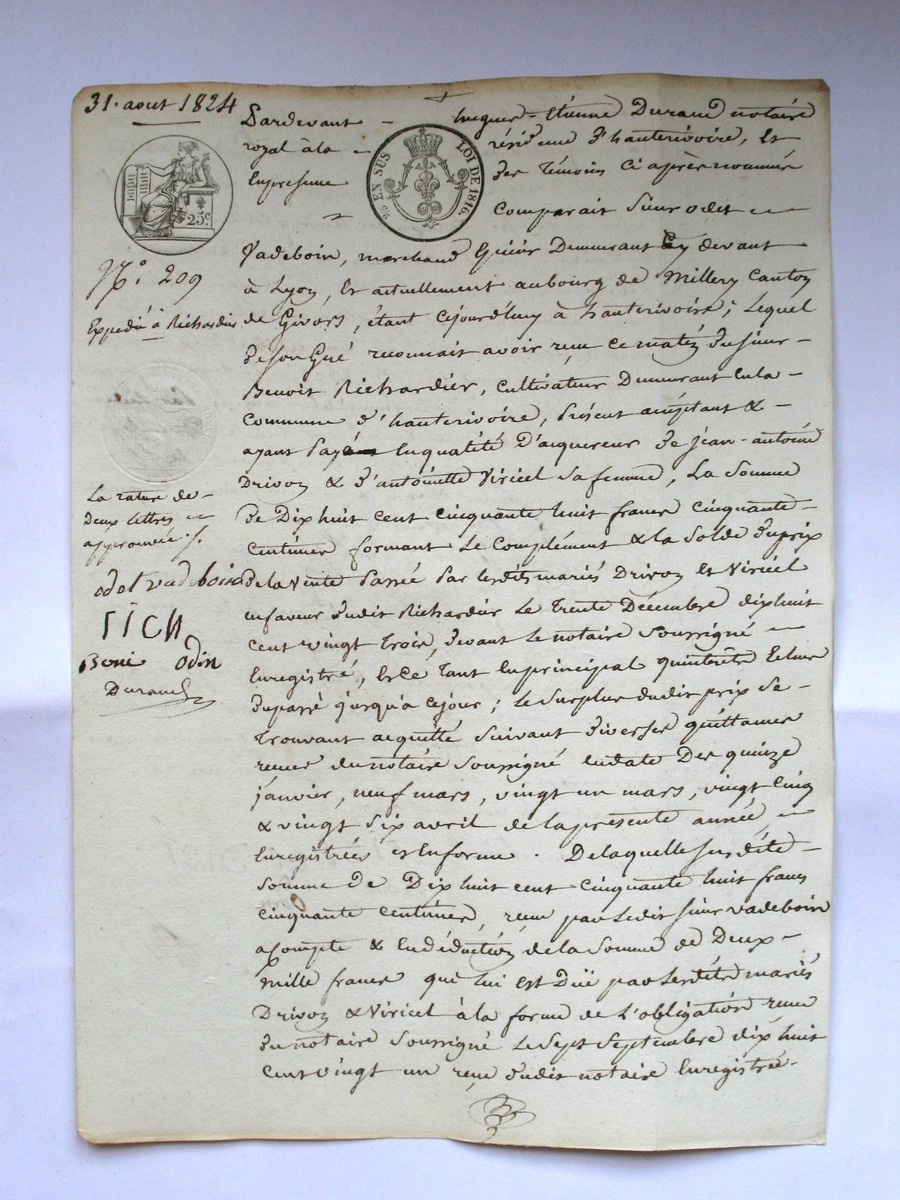 31. aout 1824
Pardevant - hugues-Etienne Durand notaire
royal à la - résidence d'hauterivoire, Et
En presence des Témoins Ci après nommés
comparait Sieur odet
EN SUS LOI DE 1816.
25c
Vadeboin, marchand Demeurant Cy devant
à Lyon, Et actuellement au bourg de Millery Canton
de Givors, étant cejourd'huy à hauterivoire; Lequel
de son Gré reconnait avoir reçu ce matin du sieur
Benoit Richardier, Cultivateur Demeurant En la
Commune d'hauterivoire, Présent acceptant &
ayant Payé En qualité D'acquereur de jean-antoine
Drivon & d'antoinette Viricel sa femme, La Somme
de Dix huit Cent Cinquante huit francs Cinquante
Centimes formant Le Complément & la Solde du prix
de la vente Passée Par lesdits mariés Drivon Et Viricel
en faveur dudit Richardier Le Trente Décembre dix huit
Cent vingt Trois, devant Le notaire Soussigné
Enregistré, Et ce Tant En principal qu'intérêts Echus
du passé jusqu'a cejour; Le Surplus dudit prix Se
Trouvant acquitté Suivant diverses quittances
reçues du notaire Soussigné En date Des quinze
janvier, neuf mars, vingt un mars, vingt Cinq
& vingt Six avril de la présente année
Enregistrées En forme. De laquelle susdite
Somme de Dix huit cent Cinquante huit francs
Cinquante Centimes, reçue par Ledit Sieur Vadeboin
a Compte & En déduction de la Somme de Deux
mille francs qui lui est Duë par Lesdits mariés
Drivon & Viricel à la forme de L'obligation reçue
du notaire Soussigné Le Sept Septembre dix huit
Cent vingt un reçue dudit notaire Enregistrée
N.° 209
Expedié à Richardier
La rature de
Deux Lettres
approuvée ./.
odet vadeboin
Odin
Durand